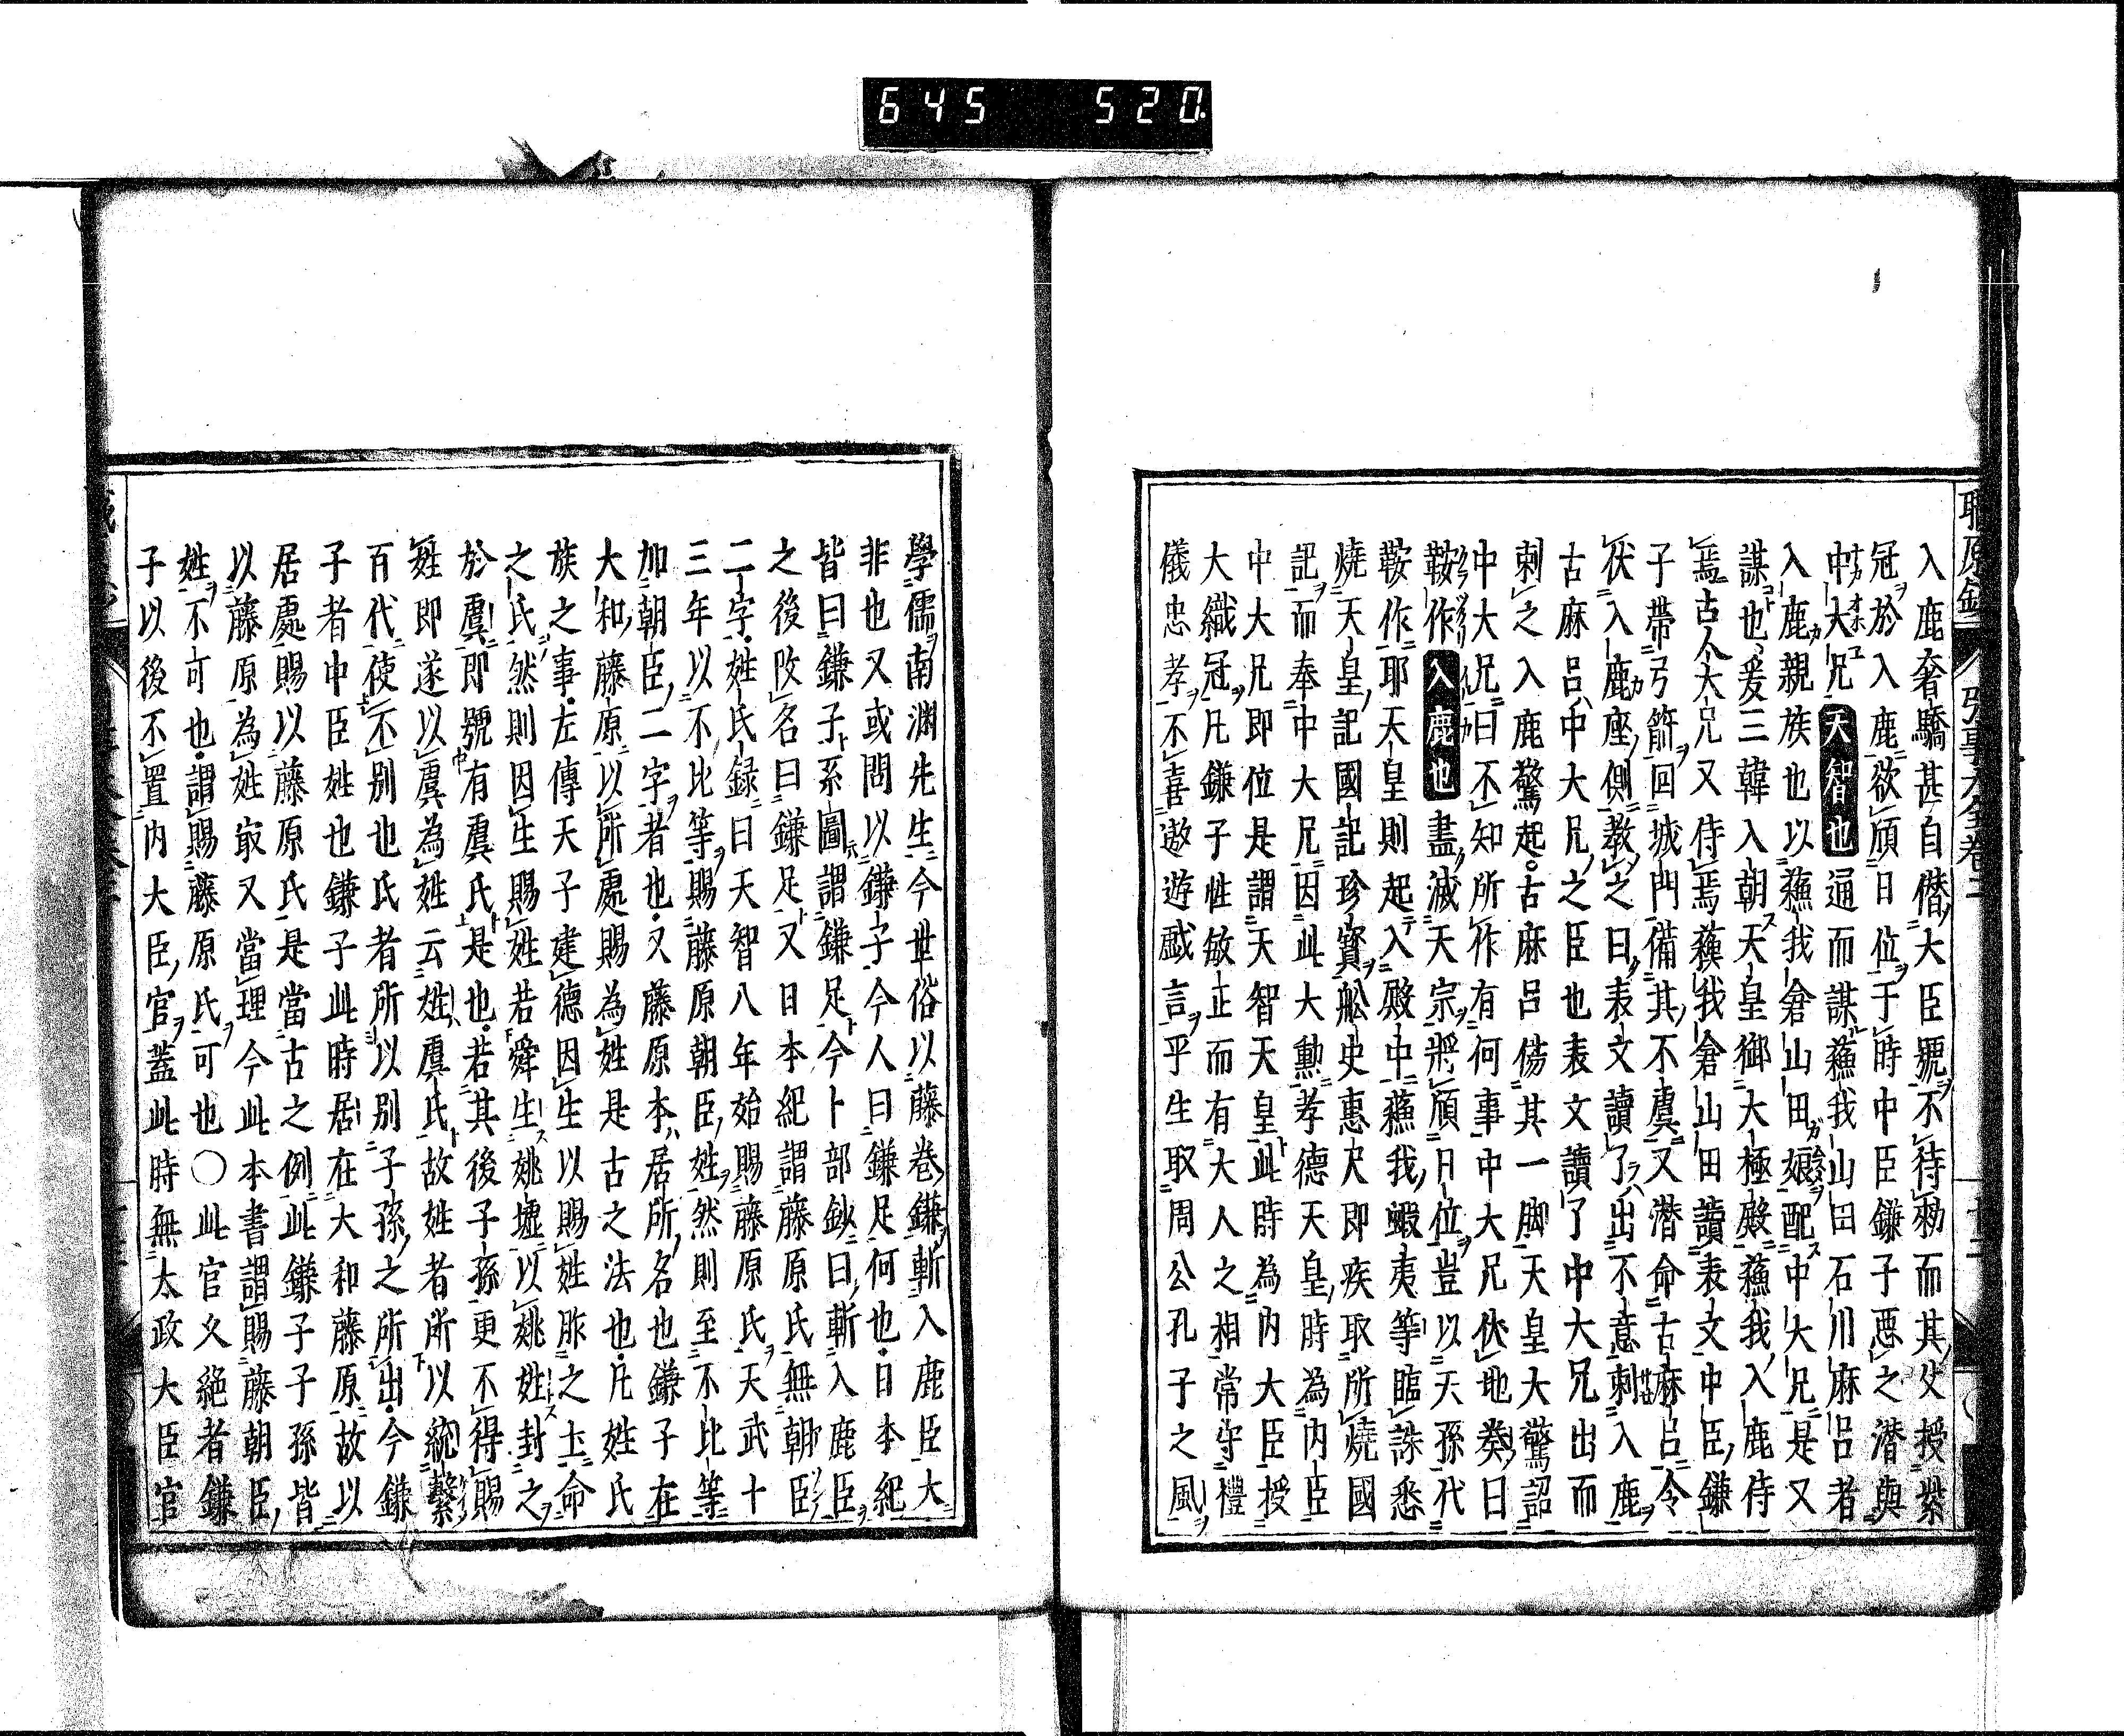 645 520
入鹿奢驕甚自僭大臣號不待勑而其父授紫
冠於入鹿欲傾日位于時中臣鎌子惡之潜與
中大兄天智也通而謀蘓我山田石川麻呂者
入鹿親族也以蘓我倉山田娘配中大兄是又
謀也爰三韓入朝天皇御大極殿蘓我入鹿侍
焉古人大兄又侍焉蘓我倉山田讀表文中臣鎌
子帶弓箭回城門備其不虞又潜命古麻呂令
伏入鹿座側教之曰表文讀了出不意刺入鹿
古麻呂中大兄之臣也表文讀了中大兄出而
刺之入鹿驚起古麻呂傷其一脚天皇大驚詔
中大兄曰不知所作有何事中大兄伏地奏曰
鞍作入鹿也盡滅天宗將傾日位豈以天孫代
鞍作耶天皇則起入殿中蘓我蝦夷等臨誅悉
燒天皇記國記珍寳舩史惠尺即疾取所燒國
記而奉中大兄因此大勳孝德天皇時為内臣
中大兄即位是謂天智天皇此時為内大臣授
大織冠凡鎌子性敏正而有大人之相常守禮
儀忠孝不喜遨遊戯言平生取周公孔子之風
學儒南渊先生今世俗以藤卷鎌斬入鹿臣大
非也又或問以鎌子今人曰鎌足何也日本紀
皆曰鎌子系圖謂鎌足今卜部鈔曰斬入鹿臣
之後改名曰鎌足又日本紀謂藤原氏無朝臣
二字姓氏録曰天智八年始賜藤原氏天武十
三年以不比等賜藤原朝臣姓然則至不比等
加朝臣二字者也又藤原本居所名也鎌子在
大和藤原以所處賜為姓是古之法也凡姓氏
族之事左傳天子建德因生以賜姓胙之土命
之氏然則因生賜姓若舜生姚墟以姚姓封之
於虞即號有虞氏是也若其後子孫更不得賜
姓即遂以虞為姓云姓虞氏故姓者所以統繫
百代使不别也氏者所以别子孫之所出今鎌
子者中臣姓也鎌子此時居在大和藤原故以
居處賜以藤原氏是當古之例此鎌子子孫皆
以藤原為姓㝡又當理今此本書謂賜藤朝臣
姓不可也謂賜藤原氏可也○此官久絕者鎌
子以後不置内大臣官蓋此時無太政大臣官